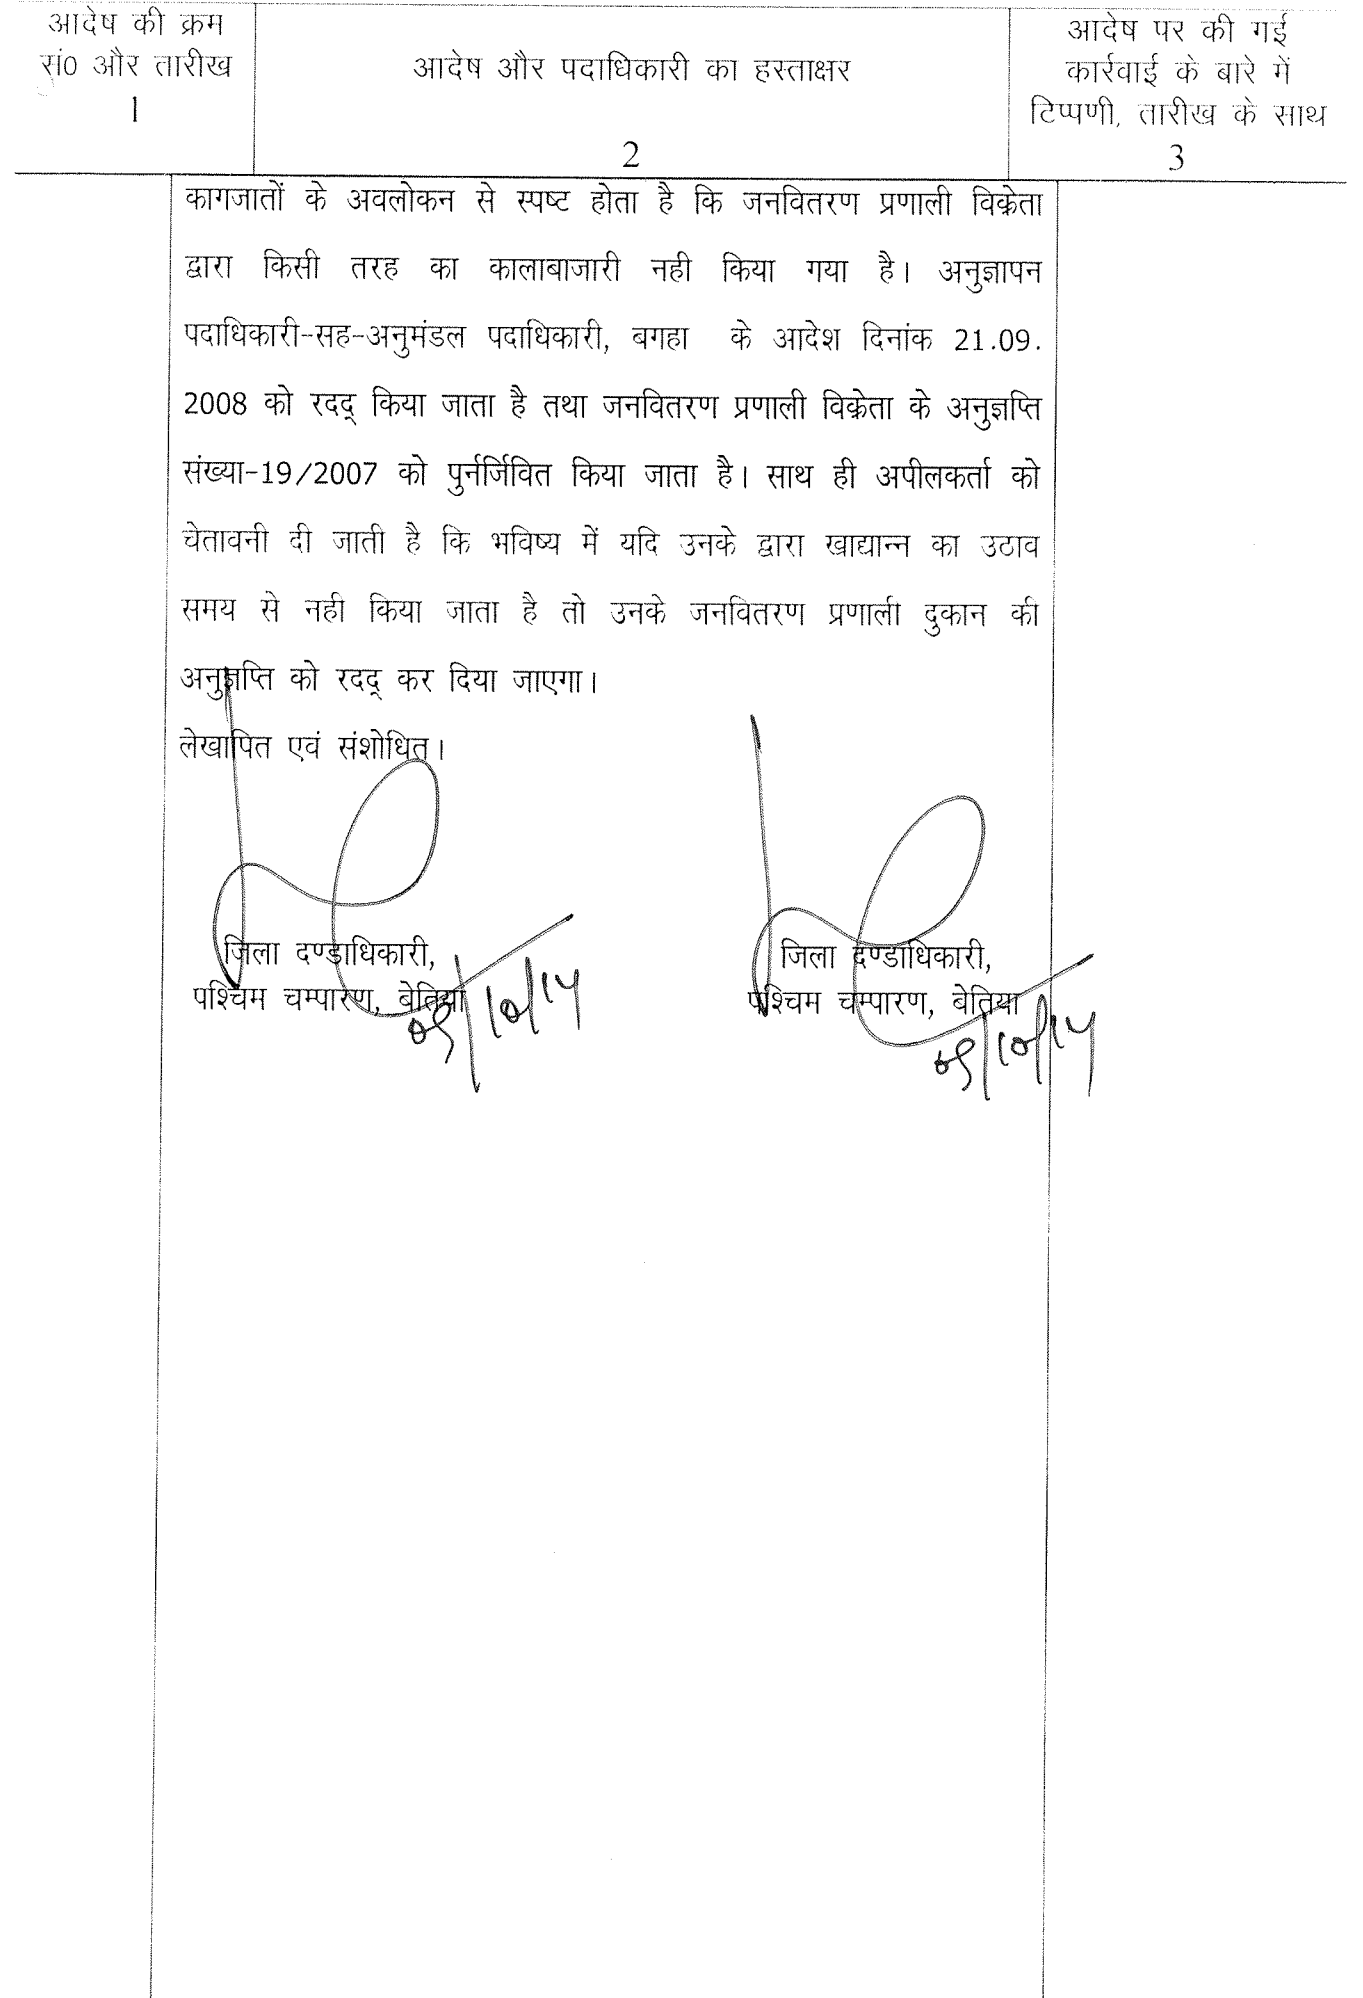 आदेष की क्रम
सं0 और तारीख
1
आदेष और पदाधिकारी का हस्ताक्षर
2
आदेष पर की गई
कार्रवाई के बारे में
टिप्पणी, तारीख के साथ
3
कागजातों के अवलोकन से स्पष्ट होता है कि जनवितरण प्रणाली विक्रेता
द्वारा किसी तरह का कालाबाजारी नही किया गया है। अनुज्ञापन
पदाधिकारी-सह-अनुमंडल पदाधिकारी, बगहा के आदेश दिनांक 21.09.
2008 को रदद् किया जाता है तथा जनवितरण प्रणाली विक्रेता के अनुज्ञप्ति
संख्या-19/2007 को पुर्नर्जिवित किया जाता है। साथ ही अपीलकर्ता को
चेतावनी दी जाती है कि भविष्य में यदि उनके द्वारा खाद्यान्न का उठाव
समय से नही किया जाता है तो उनके जनवितरण प्रणाली दुकान की
अनुज्ञप्ति को रदद् कर दिया जाएगा।
लेखापित एवं संशोधित।
जिला दण्डाधिकारी,
पश्चिम चम्पारण, बेतिया
जिला दण्डाधिकारी,
पश्चिम चम्पारण, बेतिया